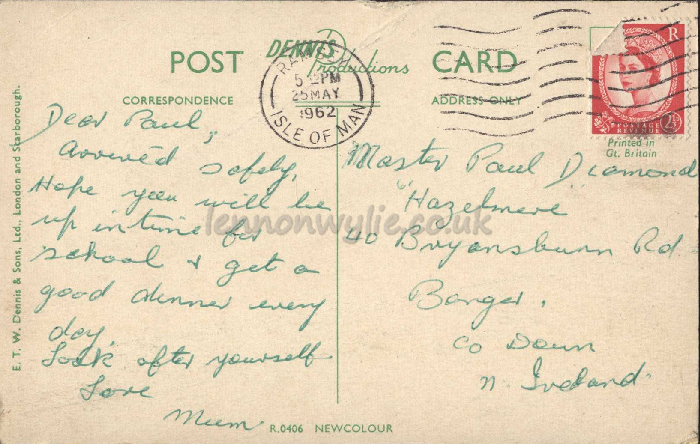 POST DENNIS Productions CARD
CORRESPONDENCE
ADDRESS ONLY
RAMSEY
5 PM
25 MAY
1962
ISLE OF MAN
R
POSTAGE
REVENUE
2½D
Printed in
Gt. Britain
Dear Paul,
Arrived safely,
Hope you will be
up in time for
school & get a
good dinner every
day.
Look after yourself
Love
Mum.
Master Paul Diamond
"Hazelmere
40 Bryansburn Rd
Bangor.
Co Down
N. Ireland.
E. T. W. Dennis & Sons, Ltd., London and Scarborough.
R.0406 NEWCOLOUR
lennonwylie.co.uk